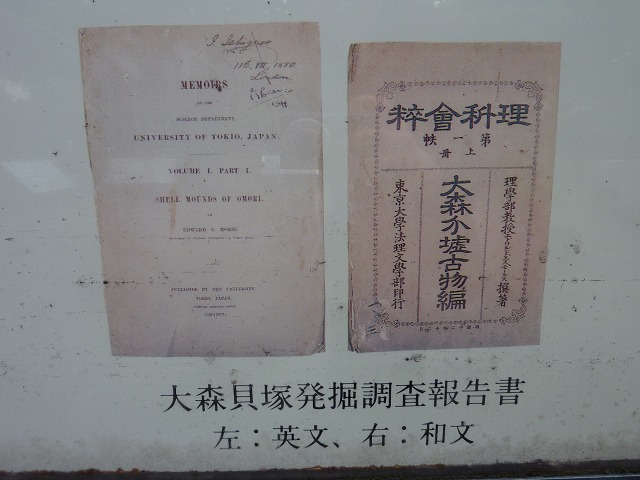 MEMOIRS
OF THE
SCIENCE DEPARTMENT,
UNIVERSITY OF TOKIO, JAPAN.
VOLUME I. PART I.
SHELL MOUNDS OF OMORI.
BY
EDWARD S. MORSE
PUBLISHED BY THE UNIVERSITY,
TOKIO, JAPAN.
理科會粹
第一帙
上冊
理學部教授 撰著
大森介墟古物編
東京大學法理文學部印行
大森貝塚発掘調査報告書
左：英文、右：和文